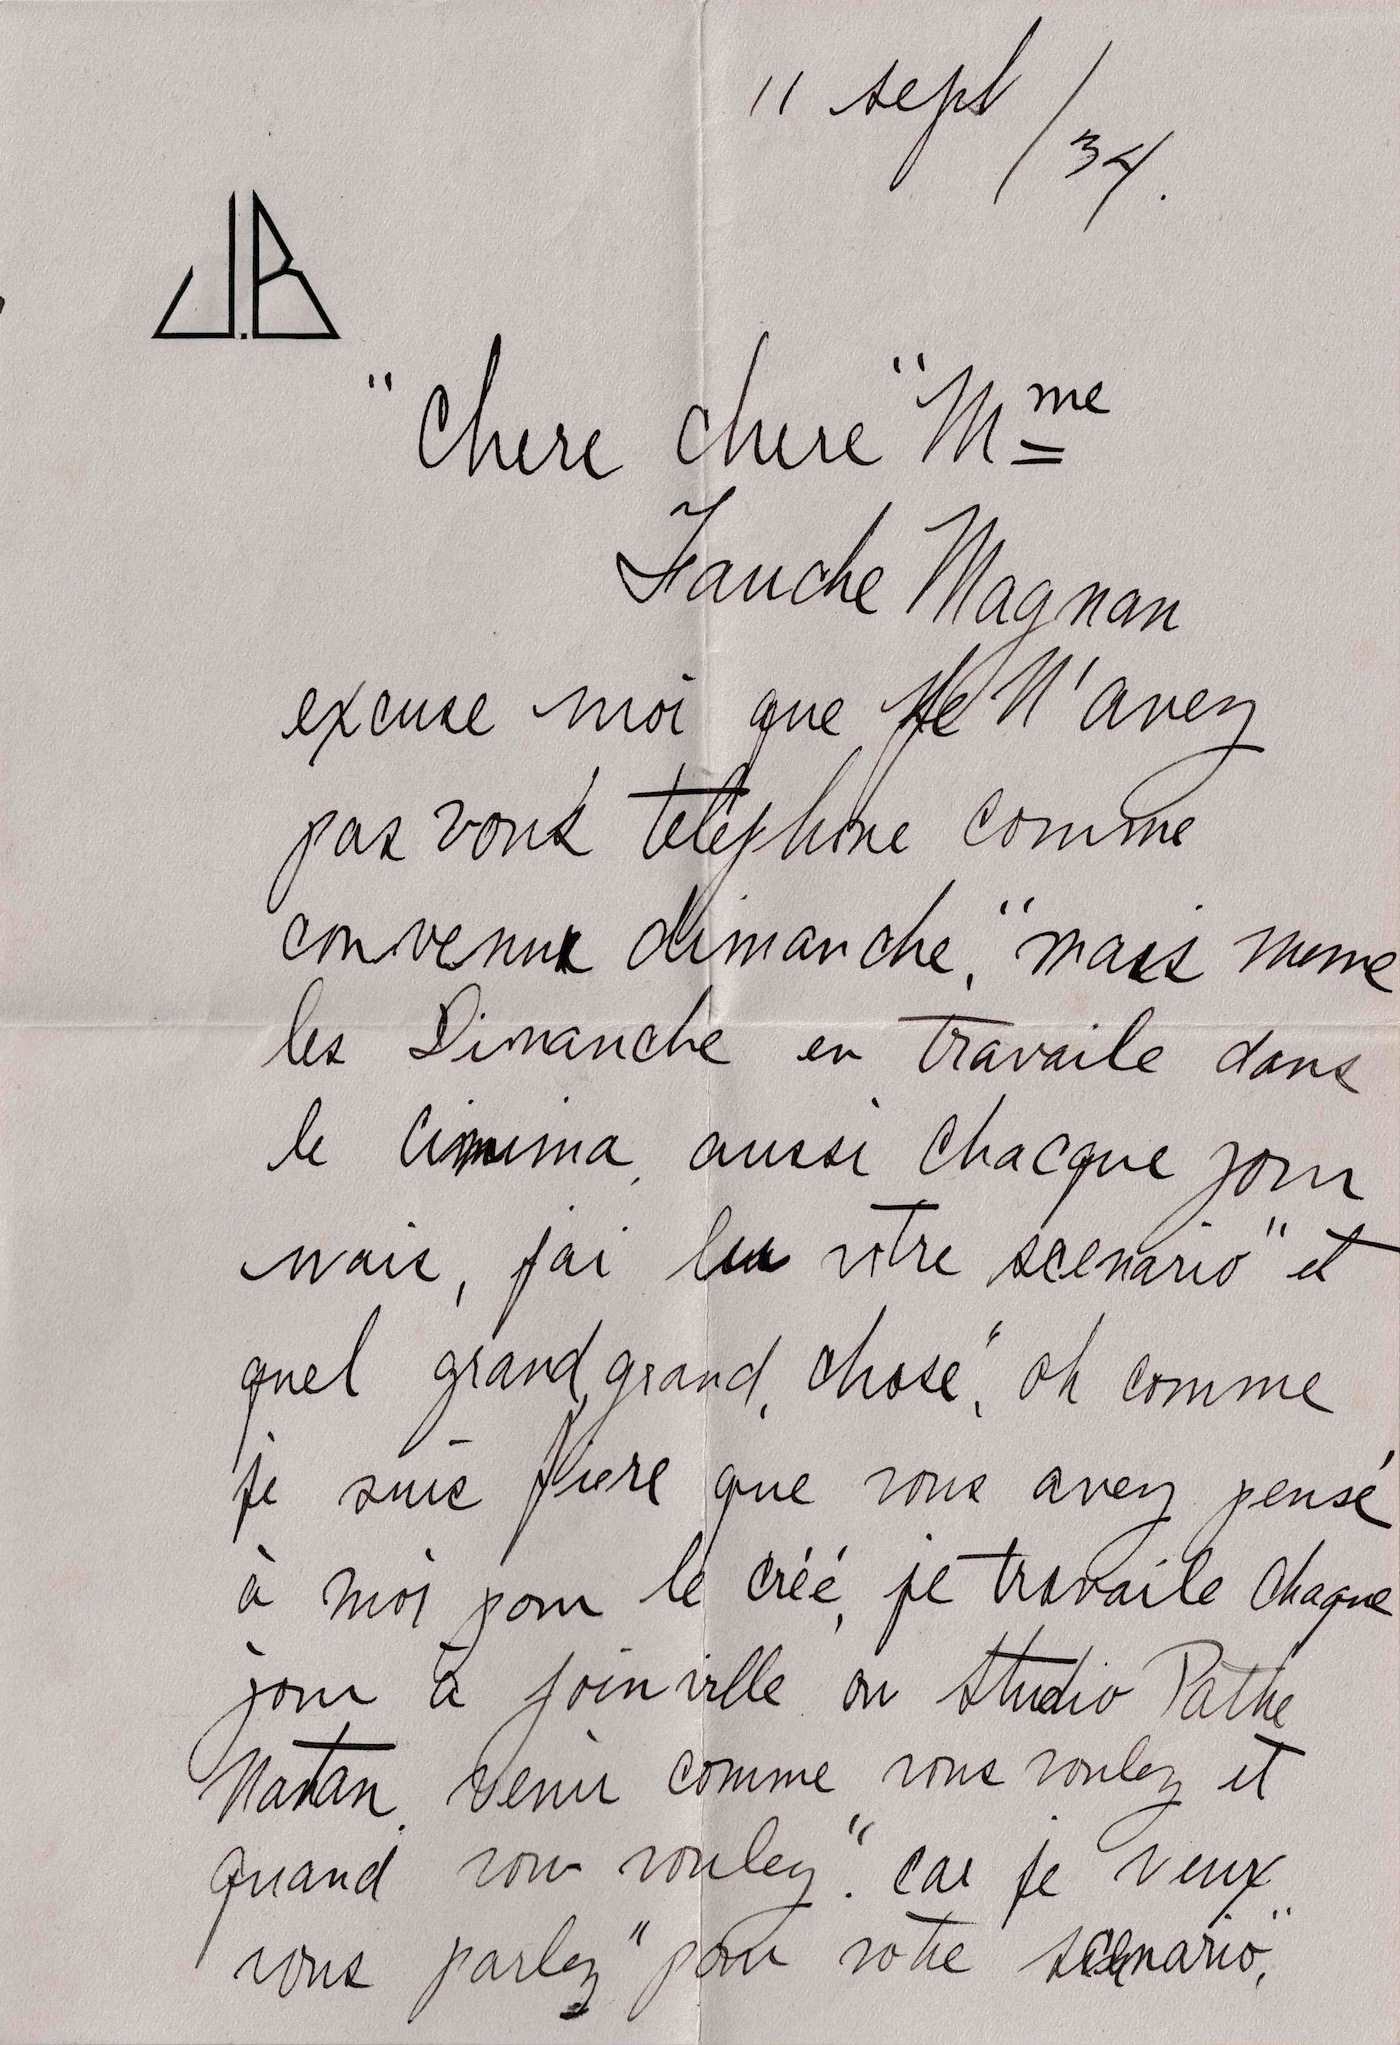 11 sept / 34.
J.B
"Chere chere" Mme
Fauche Magnan
excuse moi que Je N'avez
pas vous telephone comme
convenu dimanche, "mais meme
les Dimanche en travaile dans
le Cinima, aussi chacque jour
mais, j'ai lu votre scenario" et
quel grand, grand, chose", oh comme
je suis fiere que vous avez pensé
à moi pour le créé, je travaile chaque
jour à joinville ou studio Pathe
Natan. venir comme vous voulez et
quand vous voulez". car je veux
vous parlez" pour votre scenario",